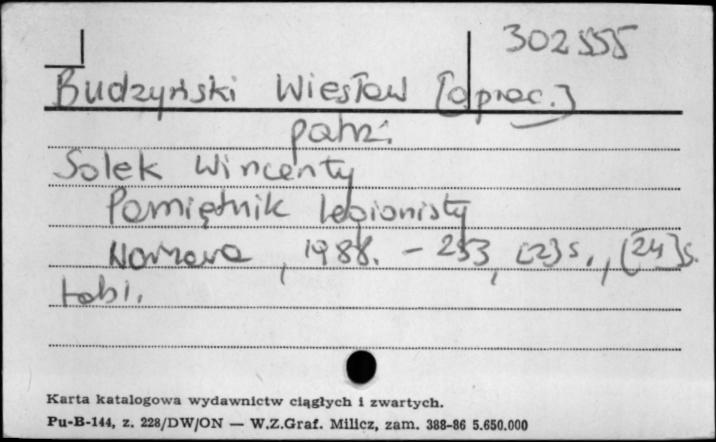 302555
Budzyński Wiesław [oprac.]
patrz:
Solek Wincenty
Pamiętnik legionisty
Warszawa, 1988. - 253, [2] s., [24] s.
tabl.
Karta katalogowa wydawnictw ciągłych i zwartych.
Pu-B-144, z. 228/DW/ON — W.Z.Graf. Milicz, zam. 388-86 5.650.000